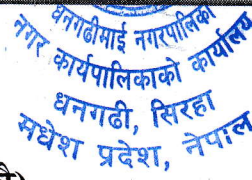 धनगढीमाई नगरपालिका
नगर कार्यपालिकाको कार्यालय
धनगढी, सिरहा
मधेश प्रदेश, नेपाल